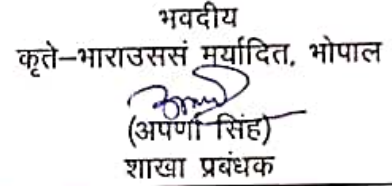 भवदीय
कृते–भाराउससं मर्यादित, भोपाल
(अपर्णा सिंह)
शाखा प्रबंधक